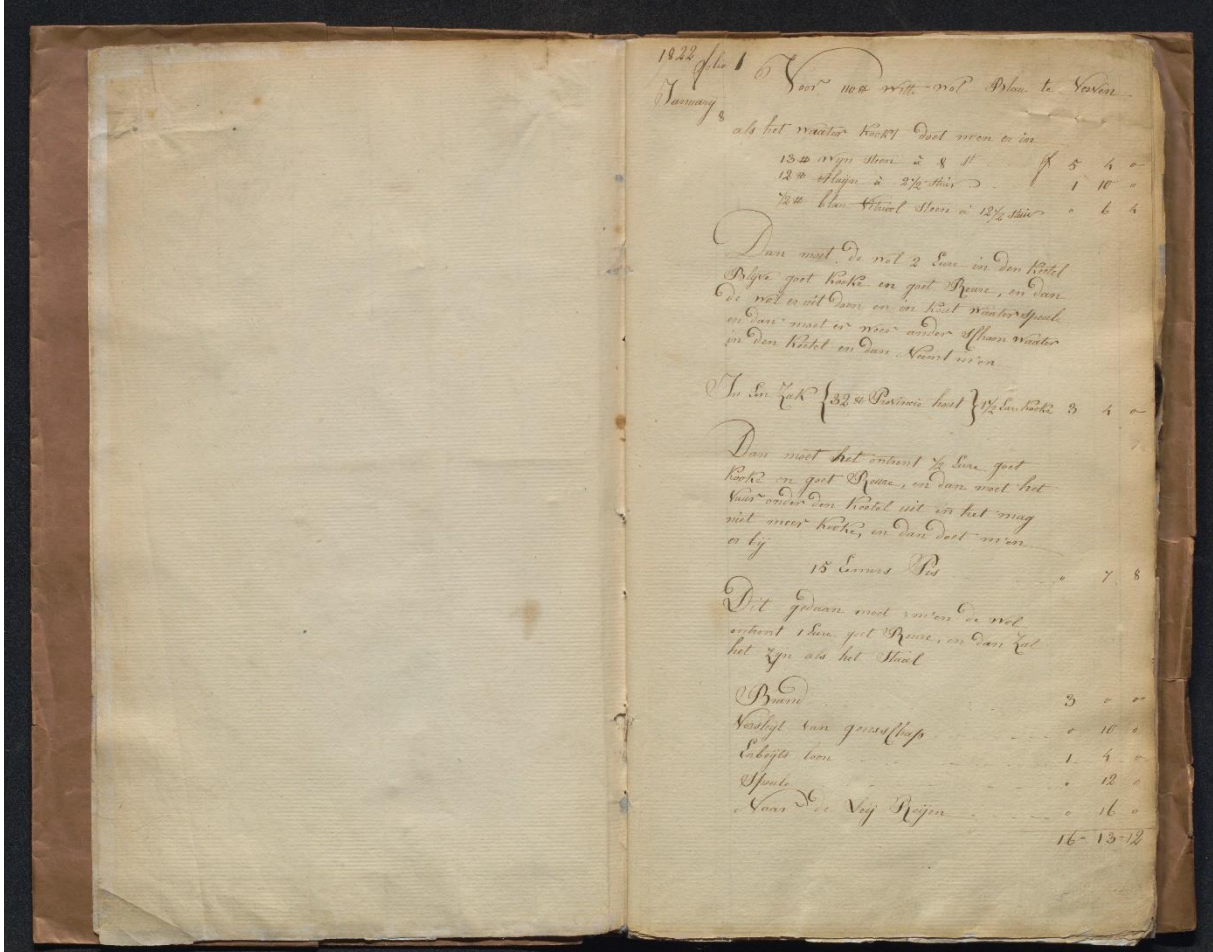 1822 folio 1
January 8
6 Voor 110 ℔ witte wol Blau te Verven
als het waater kookt doet m'en er in
13 ℔ wyn steen à 8 st f 5 4 0
12 ℔ Aluijn à 2½ stuiv 1 10 0
½ ℔ blau Vitriool steen à 12½ stuiv " 6 4
Dan moet de wol 2 Eure in den Keetel
Blyve goet kooke en goet Reure, en dan
de wol er uit doen en in kout waater spoele
en dan moet er weer ander schoon waater
in den Keetel en dan Neemt m'en
In Een Zak {32 ℔ Provincie hout} 1½ Eur kooke 3 4 0
Dan moet het ontrent ½ Eure goet
kooke en goet Reure, en dan moet het
Vuur onder den Keetel uit en het mag
niet meer kooke, en dan doet m'en
er bij
15 Emmers Pis " 7 8
Dit gedaan moet m'en de wol
ontrent 1 Eure goet Reure, en dan Zal
het Zyn als het Staal
Brand 3 0 0
Verslyt van gereedschap 0 10 0
Erbeyts loon 1 4 0
Spoele " 12 0
Naar de Veij Reijen 0 16 0
16 - 13 - 12